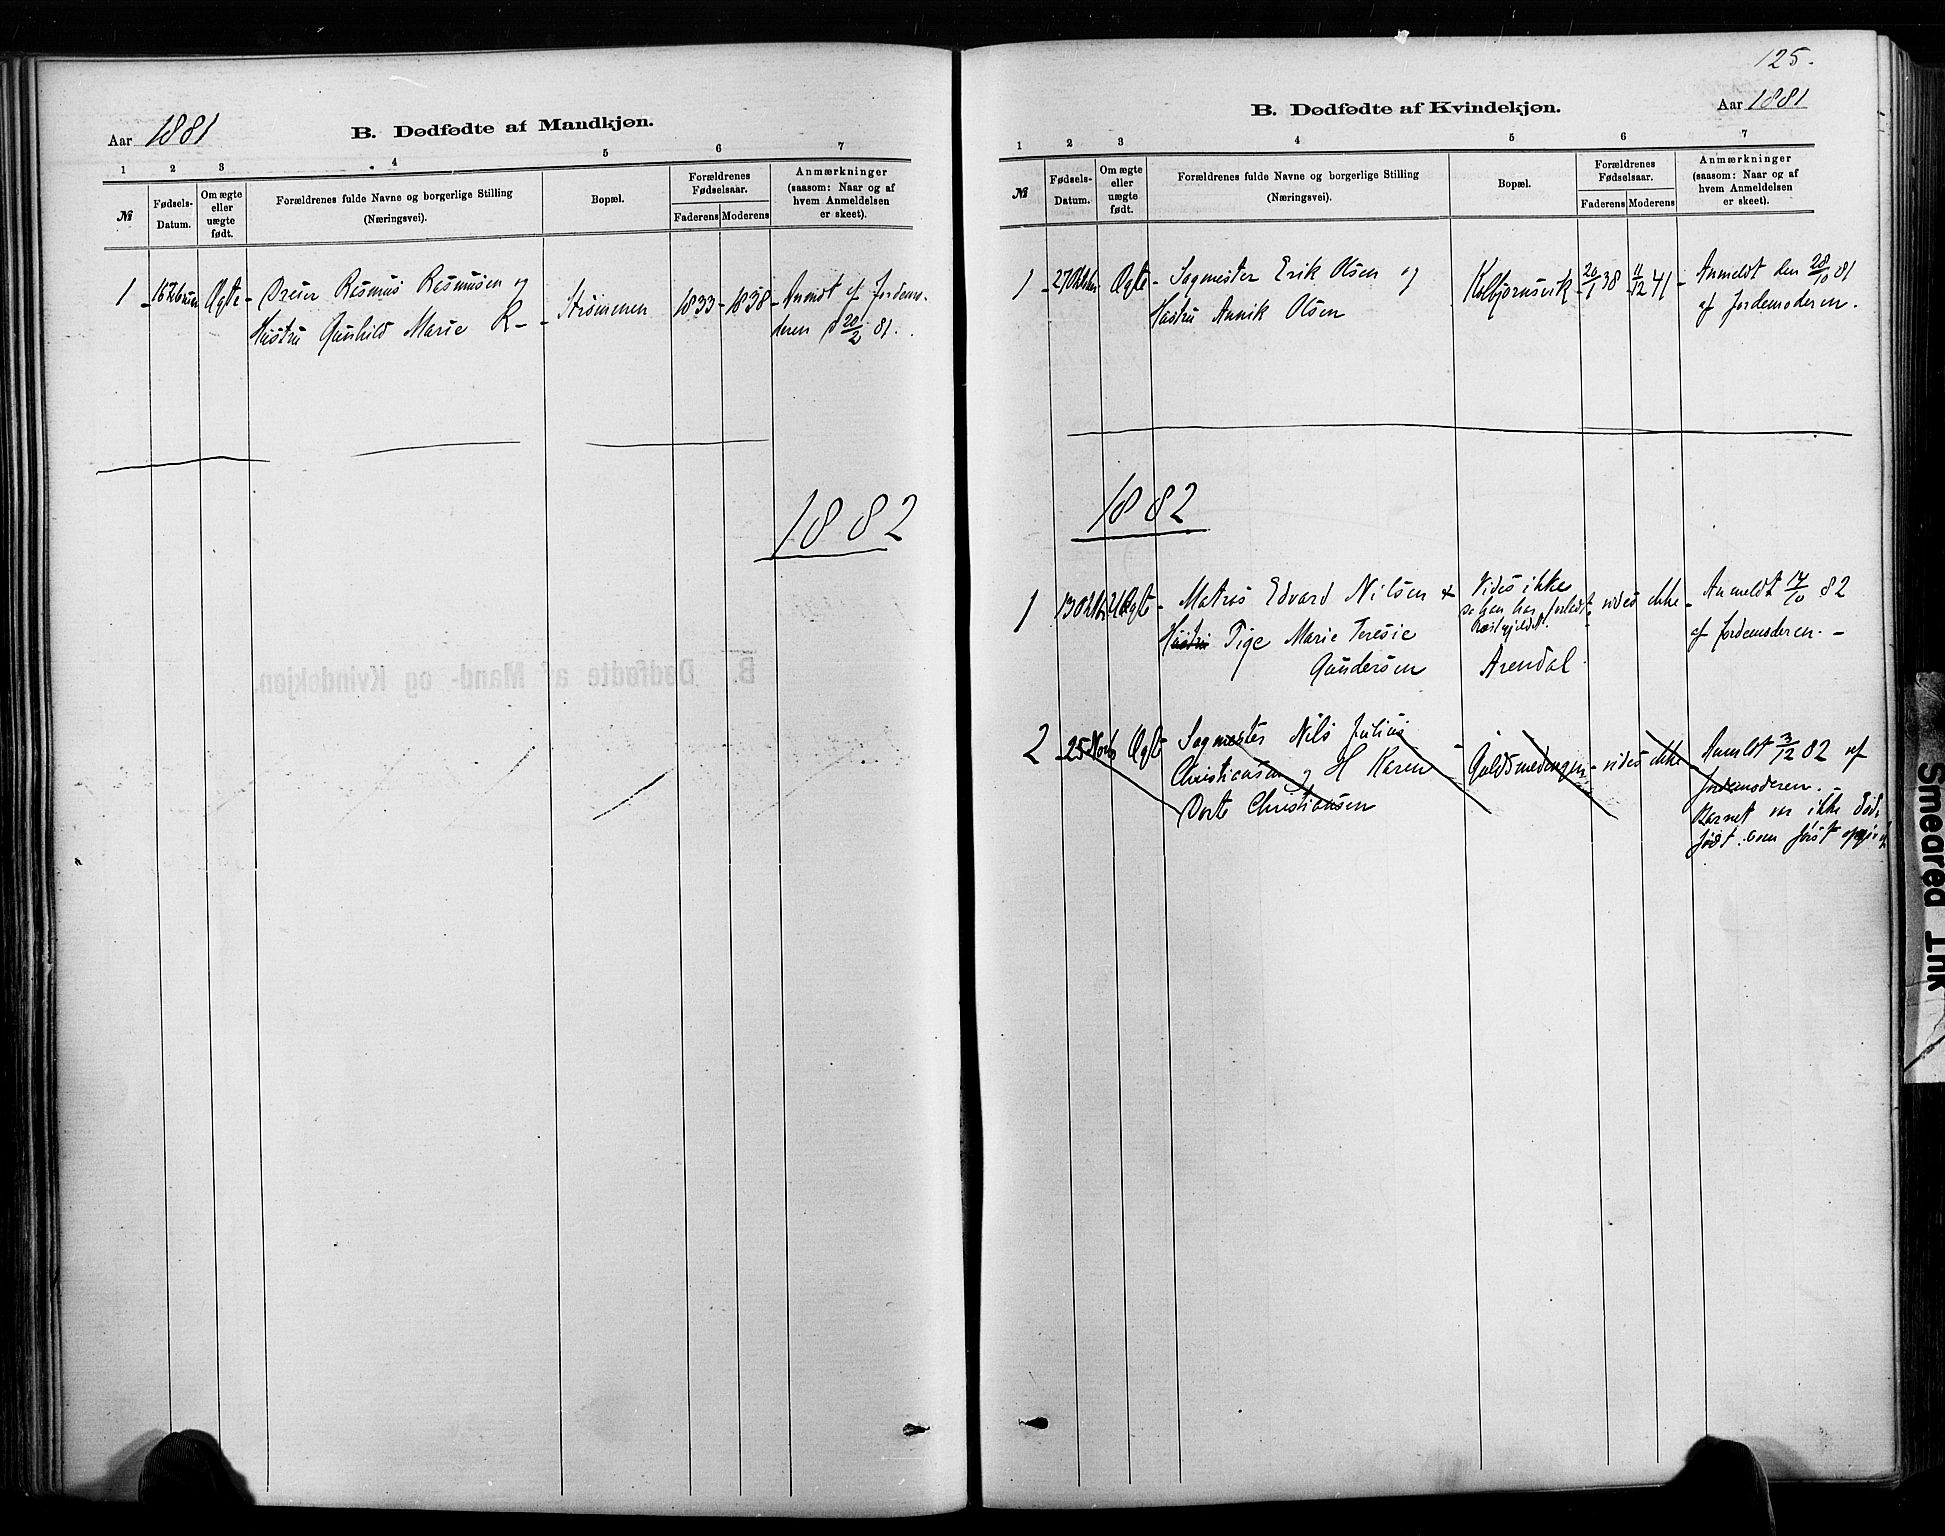 Aar 1881
B. Dødfødte af Mandkjøn.
1 2 3 4 5 6 7
№
Fødsels-
Datum.
Om ægte
eller
uægte
født.
Forældrenes fulde Navne og borgerlige Stilling
(Næringsvei).
Bopæl.
Forældrenes
Fødselsaar.
Faderens Moderens
Anmærkninger
(saasom: Naar og af
hvem Anmeldelsen
er skeet).
1 Ægte - Rasmus Rasmusen og
Hustru Gunhild Marie R-
Strømmen
1833 - 1838
af Jordemo-
deren d 20/2 81.
1882
125.
B. Dødfødte af Kvindekjøn.
Aar 1881
1 2 3 4 5 6 7
№
Fødsels-
Datum.
Om ægte
eller
uægte
født.
Forældrenes fulde Navne og borgerlige Stilling
(Næringsvei).
Bopæl.
Forældrenes
Fødselsaar.
Faderens Moderens
Anmærkninger
(saasom: Naar og af
hvem Anmeldelsen
er skeet).
1 - 27 Oktbr Ægte - Sagmester Erik Olsen og
Hustru Annik Olsen
Kolbjørnsvik
20/1 38 11/12 41
- Anmeldt den 28/10 81
af Jordemoderen.
1882
1 13 Oktbr Uægte - Matros Edvard Nilsen &
Hustru Pige Marie Teresie
Gundersen
Vides ikke
da han har forladt
Arendal
vides ikke
- Anmeldt 14/10 82
af Jordemoderen. -
2 - 25 Novb Ægte Sagmester Nils Julius
Christiansen og H Karen
Dorte Christiansen
- Guldsmedengen - vides ikke
- Anmeldt 3/12 82 af
Jordemoderen. -
Barnet var ikke død-
født som først opgivet
Smeared Ink